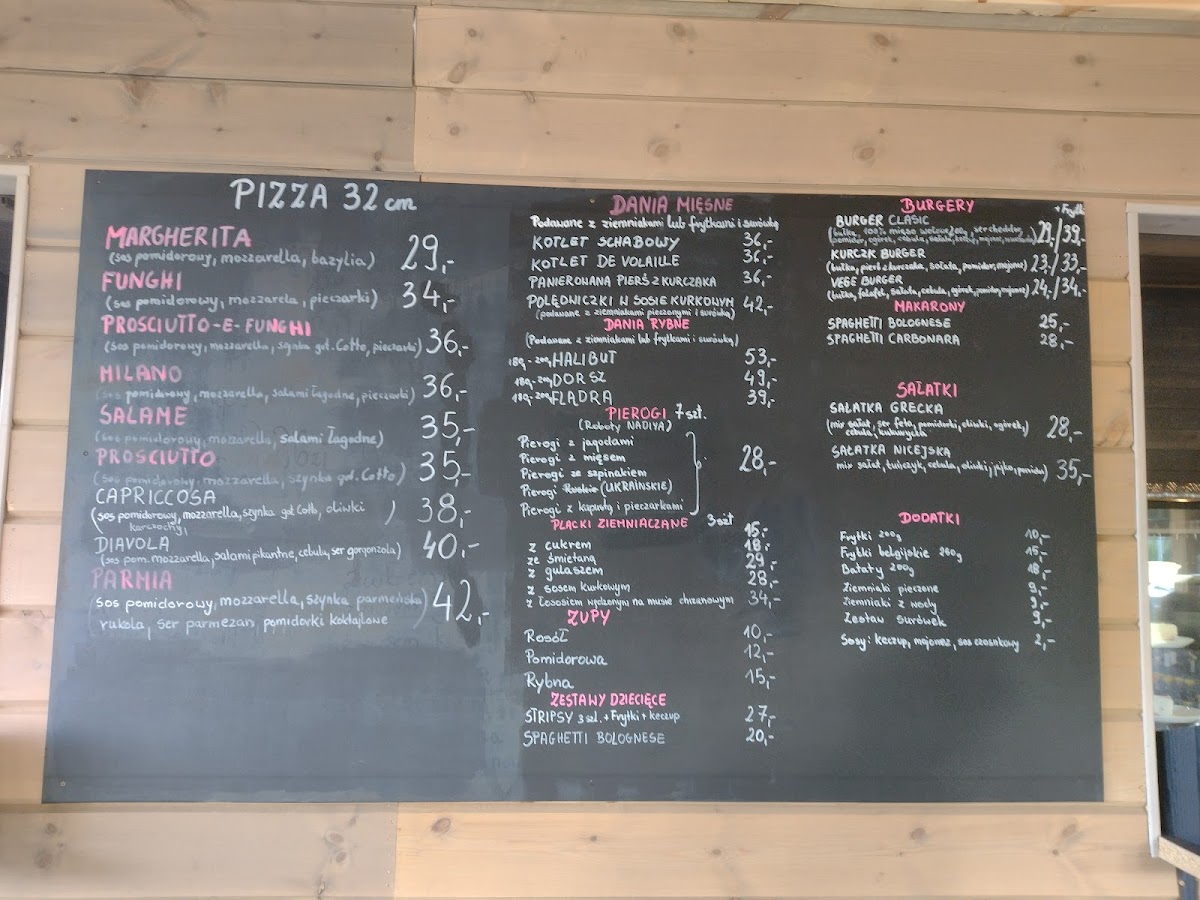 PIZZA 32 cm
MARGHERITA
(sos pomidorowy, mozzarella, bazylia) 29,-
FUNGHI
(sos pomidorowy, mozzarela, pieczarki) 34,-
PROSCIUTTO-E-FUNGHI
(sos pomidorowy, mozzarella, szynka got. Cotto, pieczarki) 36,-
MILANO
(sos pomidorowy, mozzarella, salami łagodne, pieczarki) 36,-
SALAME
(sos pomidorowy, mozzarella, salami łagodne) 35,-
PROSCIUTTO
(sos pomidorowy, mozzarella, szynka got. Cotto) 35,-
CAPRICCOSA
(sos pomidorowy, mozzarella, szynka got Cotto, oliwki ) 38,-
karczochy,
DIAVOLA
(sos pom. mozzarella, salami pikantne, cebula, ser gorgonzola) 40,-
PARMIA
(sos pomidorowy, mozzarella, szynka parmeńska) 42,-
rukola, ser parmezan pomidorki koktajlowe
DANIA MIĘSNE
Podawane z ziemniakami lub frytkami i surówką
KOTLET SCHABOWY 36,-
KOTLET DE VOLAILLE 36,-
PANIEROWANA PIERŚ Z KURCZAKA 36,-
POLĘDWICZKI W SOSIE KURKOWYM 42,-
(podawane z ziemniakami pieczonymi i surówką)
DANIA RYBNE
(Podawane z ziemniakami lub frytkami i surówką)
180,-200g HALIBUT 53,-
180,-200g DORSZ 49,-
180,-200g FLĄDRA 39,-
PIEROGI 7 szt.
(Roboty NADIYA)
Pierogi z jagodami
Pierogi z mięsem
Pierogi ze szpinakiem 28,-
Pierogi Ruskie (UKRAIŃSKIE)
Pierogi z kapustą i pieczarkami
PLACKI ZIEMNIACZANE 3 szt
15,-
z cukrem 18,-
ze śmietaną 29,-
z gulaszem 28,-
z sosem kurkowym
z łososiem wędzonym na musie chrzanowym 34,-
ZUPY
Rosół 10,-
Pomidorowa 12,-
Rybna 15,-
ZESTAWY DZIECIĘCE
STRIPSY 3 szt. + Frytki + keczup 27,-
SPAGHETTI BOLOGNESE 20,-
BURGERY + Frytki
BURGER CLASIC 29,-/39,-
(bułka, 100% mięso wołowe, ser cheddar,
pomidor, ogórek, cebula, sałata,
KURCZK BURGER 23,-/33,-
(bułka, pierś z kurczaka, sałata, pomidor, majonez)
VEGE BURGER 24,-/34,-
(bułka, falafel, sałata, cebula, ogórek, pomidor, majonez)
MAKARONY
SPAGHETTI BOLOGNESE 25,-
SPAGHETTI CARBONARA 28,-
SAŁATKI
SAŁATKA GRECKA
(mix sałat, ser feta, pomidorki, oliwki, ogórek, 28,-
cebula, kukurydza
SAŁATKA NICEJSKA
mix sałat, tuńczyk, cebula, oliwki, jajko, pomidor) 35,-
DODATKI
Frytki 200g 10,-
Frytki belgijskie 260g 15,-
Bataty 200g 18,-
Ziemniaki pieczone 9,-
Ziemniaki z wody 9,-
Zestaw surówek 9,-
Sosy: keczup, majonez, sos czosnkowy 2,-